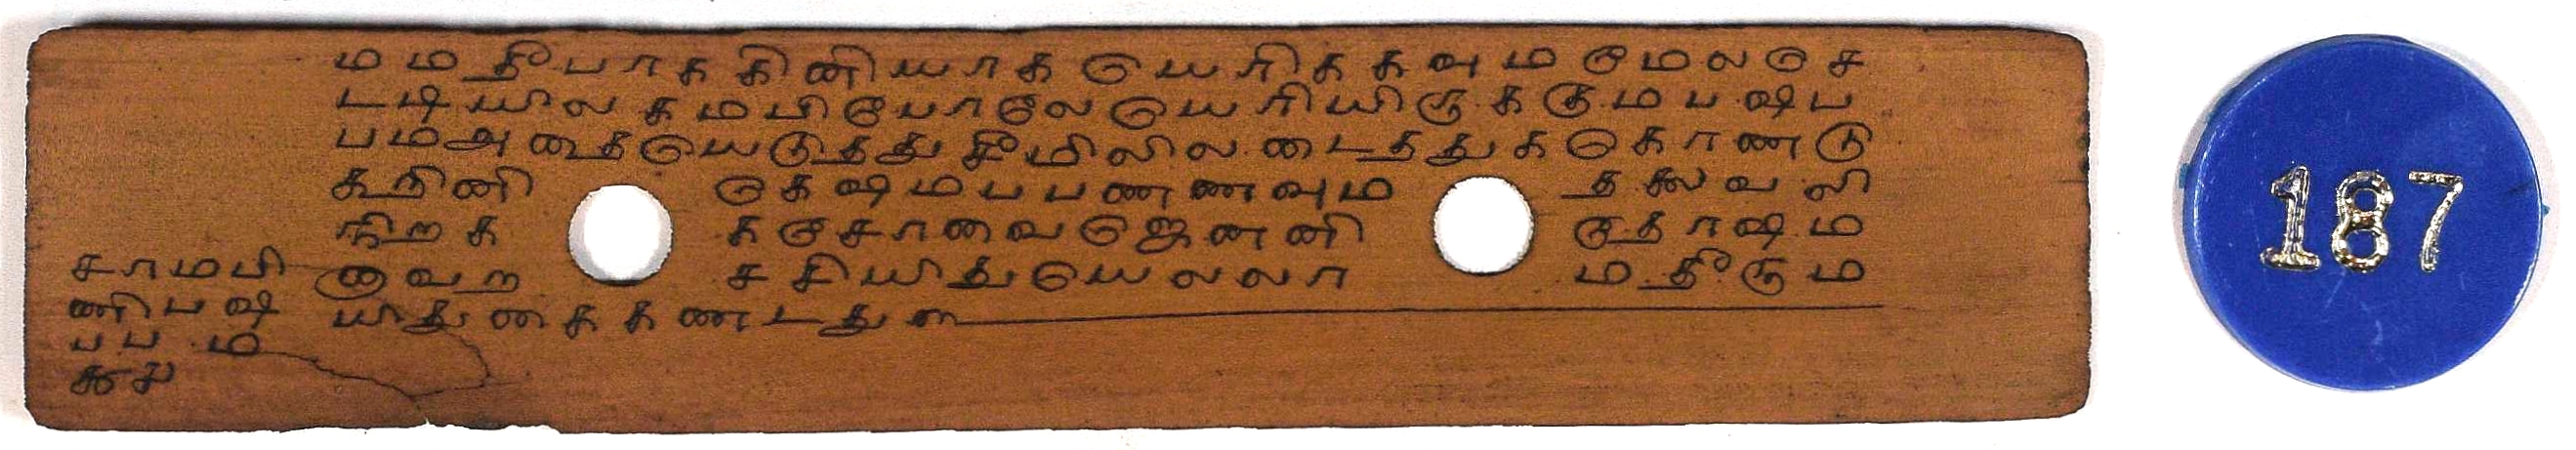 மமதீபாககினியாகயெரிககவுமமேலசெ
டடியிலகமபிபோலேயெரியிருககுமபஷப
பமஅதையெடுததுசீமிலிலடைததுககொணடு
கூறினி கெஷமபபணணவும தலைவலி
நிறக கசோவைஜெனனி தோஷம
வற சசியிதுயெலலா மதீரும
யிதுகைகணடது
சாமபி
ணிபஷ
பபம
187